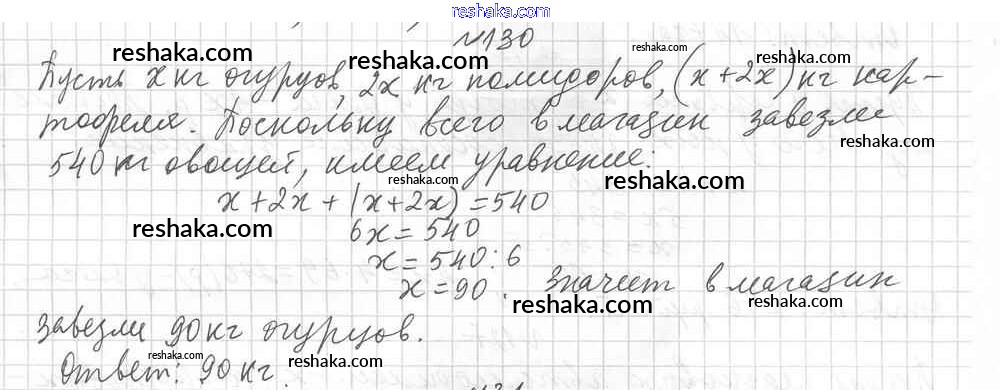 reshaka.com
№130
Пусть x кг огурцов, 2x кг помидоров, (x+2x) кг кар-
тофеля. Поскольку всего в магазин завезли
540 кг овощей, имеем уравнение:
x+2x+(x+2x)=540
6x=540
x=540:6
x=90. Значит в магазин
завезли 90 кг огурцов.
Ответ: 90 кг.
reshaka.com
reshaka.com
reshaka.com
reshaka.com
reshaka.com
reshaka.com
reshaka.com
reshaka.com
reshaka.com
reshaka.com
reshaka.com
reshaka.com
reshaka.com
reshaka.com